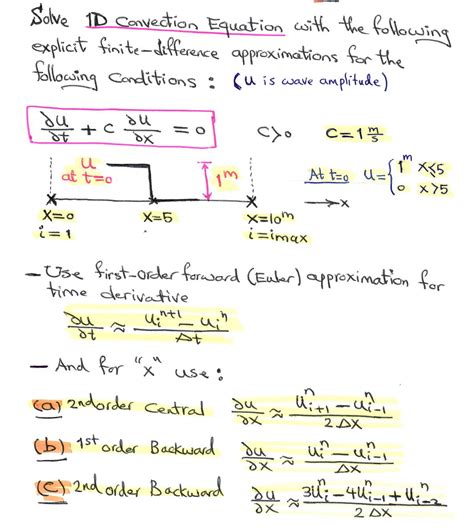 Solve 1D Convection Equation with the following
explicit finite-difference approximations for the
following Conditions : (u is wave amplitude)
∂u/∂t + c ∂u/∂x = 0    C>0    C=1 m/s
u at t=0    1m    At t=0    u = { 1m x≤5
0 x>5
→x
x=0    x=5    x=10m
i=1    i=imax
– Use first-order forward (Euler) approximation for
time derivative
∂u/∂t ≈ (u_i^{n+1} – u_i^n)/Δt
– And for "x" use :
(a) 2nd order Central    ∂u/∂x ≈ (u_{i+1}^n – u_{i-1}^n)/(2Δx)
(b) 1st order Backward    ∂u/∂x ≈ (u_i^n – u_{i-1}^n)/Δx
(c) 2nd order Backward    ∂u/∂x ≈ (3u_i^n – 4u_{i-1}^n + u_{i-2}^n)/(2Δx)